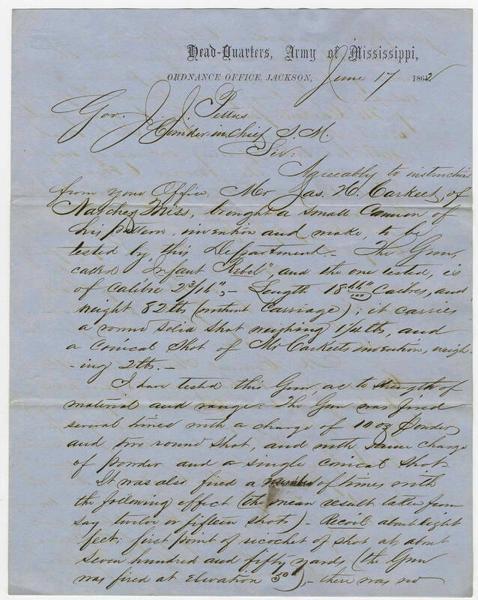 Head-Quarters, Army of Mississippi,
ORDNANCE OFFICE, JACKSON, June 17 1862
Gov. J J Pettus
Comdr in Chief S. M.
Sir.
Agreeably to instruction
from your Office, Mr Jas. H. Carkeet, of
Natchez Miss, brought a small Cannon of
his pattern, invention and make, to be
tested by this Department.- The Gun,
called "Infant Rebel", and the one tested, is
of Calibre 2 3/16"; - Length 18 Calbes, and
weight 82 lb (without Carriage); it carries
a round solid shot weighing 1 1/4 lb, and
a Conical Shot of Mr Carkeets invention, weigh-
ing 2 lb. -
I have tested this Gun, as to strength of
material and range. The Gun was fired
several times with a charge of 10 oz Powder
and two round shot, and with same charge
of powder and a single conical shot.
It was also fired a number of times with
the following effect (the mean result taken from
say twelve or fifteen shots). Recoil about eight
feet; first point of ricochet of shot at about
seven hundred and fifty yards (the Gun
was fired at Elevation 50'), - there was no